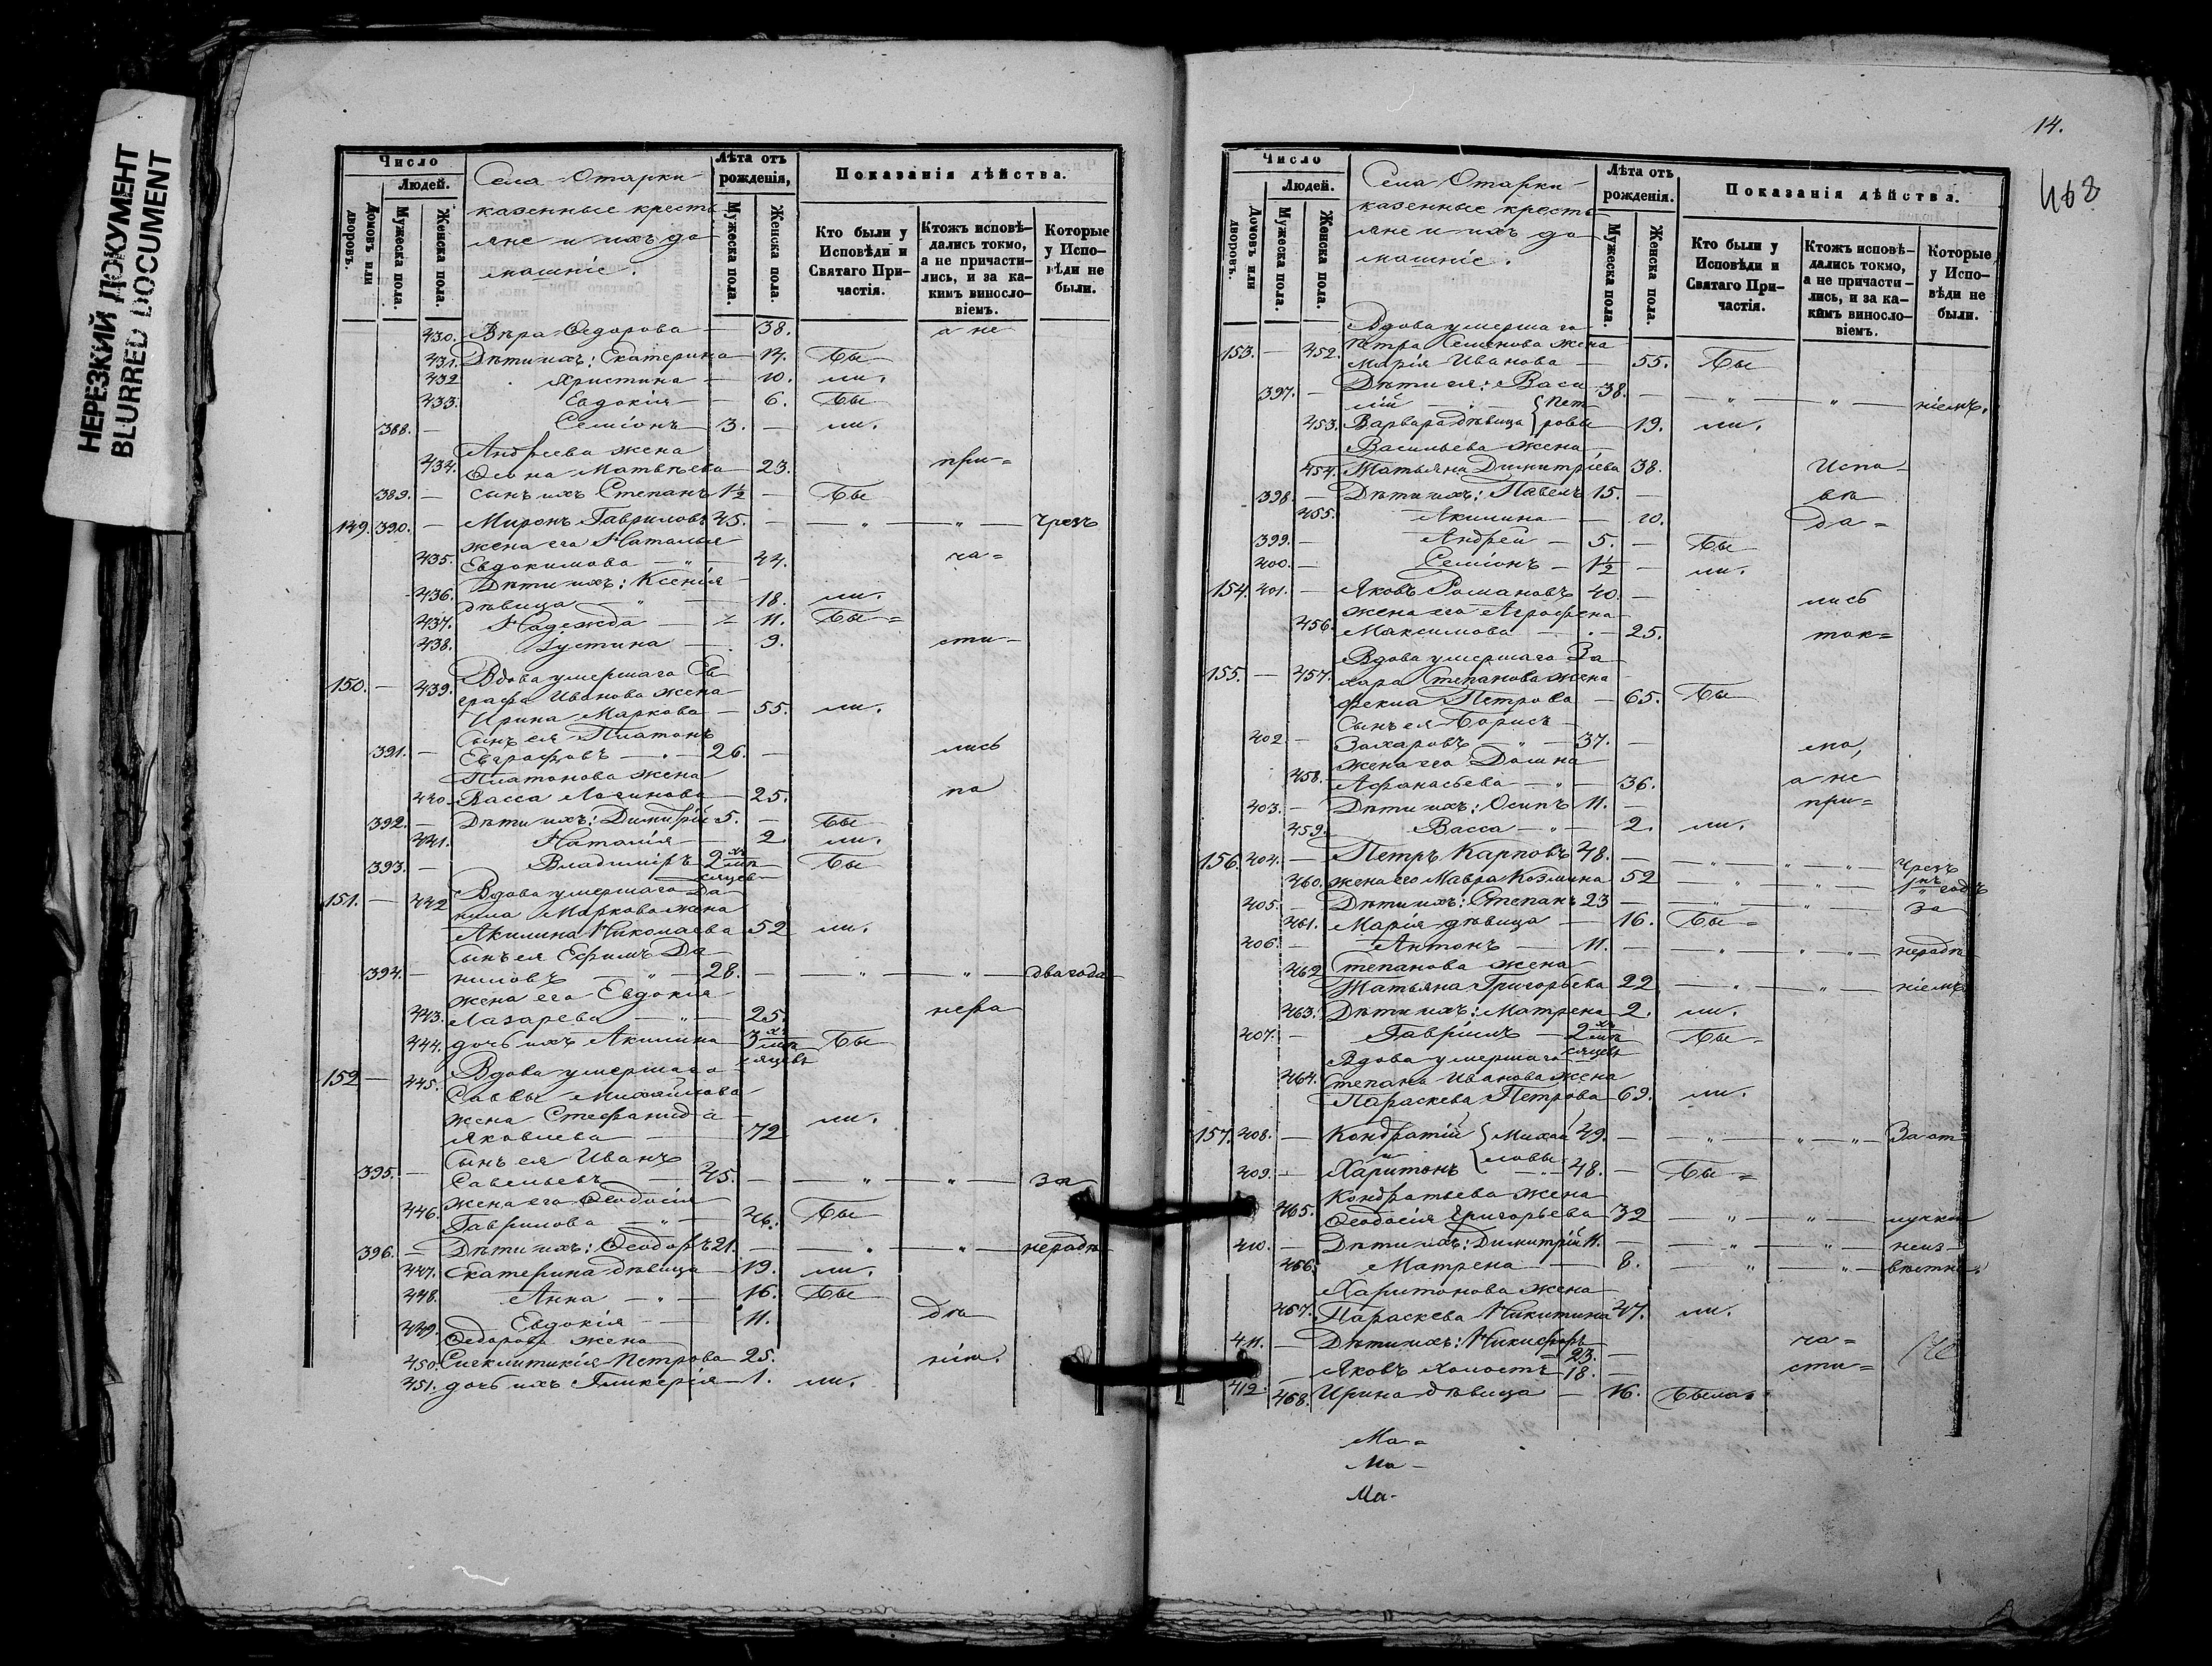 НЕРЕЗКИЙ ДОКУМЕНТ
BLURRED DOCUMENT
Число
Людей.
Домовъ или дворовъ.
Мужеска пола.
Женска пола.
Села Отарки
казенные кресть
яне и ихъ до
машніе.
Лѣта отъ
рожденія,
Мужеска пола.
Женска пола.
Показанія дѣйства.
Кто были у
Исповѣди и
Святаго При-
частія.
Ктожъ исповѣ-
дались токмо,
а не причасти-
лись, и за ка-
кимъ винносло-
віемъ.
Которые
у Испо-
вѣди не
были.
430. Вѣра Ѳедорова — 38. а не
431. Дѣти ихъ: Екатерина — 14. Бы
432 Христина — 10. ли.
433. Евдокія — 6. Бы
388. — Семіонъ 3. — ли.
Андреева жена
434. Матвѣева — 23. при=
389. — сынъ ихъ Степанъ 1½ — Бы
149. 390. — Миронъ Гавриловъ 45. — — „ — „ — чрезъ
жена его Наталья
435. Евдокимова — „ — 44. ча=
Дѣти ихъ: Ксенія
436. дѣвица — „ — 18. ли.
437. Надежда — 11. Бы=
438. Іустина — 9. сти-
Вдова умершаго Ев
150. — 439. графа Иванова жена
Ирина Маркова — 55. ли.
Сынъ ея Платонъ
391. — Евграфовъ — 26. — лись
Платонова жена
440. Васса Логинова — 25. по
392. — Дѣти ихъ: Димитрій 5. — Бы
441. Наталія — 2 ли.
393. — Владиміръ 2хъ мѣ Бы
сяцевъ
Вдова умершаго Да
151. — 442 нила Маркова жена
Акилина Николаева 52 ли.
Сынъ ея Ефимъ Да
394. — ниловъ — „ — 28. — — „ — „ — два года
жена его Евдокія
443. Лазарева — „ — 25. нера
444. дочь ихъ Акилина 3хъ мѣ Бы
сяцевъ
Вдова умершаго
152 — 445. Саввы Михайлова
жена Стефанида
Яковлева — 72 ли.
Сынъ ея Иванъ
395. — Савельевъ — 45. — — „ — „ — за
жена его Ѳеодосія
446. Гаврилова — „ — 46. Бы
396. — Дѣти ихъ: Ѳеодоръ 21. — — „ — „ — нерадѣ
447. Екатерина дѣвица — 19. ли.
448. Анна — „ — 16. Бы
449. Евдокія — 11. дѣ
Ѳедорова жена
450. Сигклитикія Петрова — 25. нію.
451. дочь ихъ Гликерія — 1. ли.
14.
468
Число
Людей.
Домовъ или дворовъ.
Мужеска пола.
Женска пола.
Села Отарки
казенные кресть
яне и ихъ до
машніе.
Лѣта отъ
рожденія.
Мужеска пола.
Женска пола.
Показанія дѣйства.
Кто были у
Исповѣди и
Святаго При-
частія.
Ктожъ исповѣ-
дались токмо,
а не причасти-
лись, и за ка-
кимъ винносло-
віемъ.
Которые
у Испо-
вѣди не
были.
Вдова умершаго
153. — 452. Петра Семенова жена
Марія Иванова — 55. Бы
397. — Дѣти ея: Васи 38. — — „ — „ — ніемъ.
лій — „ — { Пет
453. Варвара дѣвица { ровы — 19. ли.
Васильева жена
454. Татьяна Димитріева 38. Испо
398. — Дѣти ихъ: Павелъ 15. — вѣ
455. Акилина — 10. да=
399. — Андрей — 5. — Бы
400. — Семіонъ — 1½ — ли.
154. 401. — Яковъ Романовъ 40. — лись
жена его Агрофена
456. Максимова — 25. ток=
Вдова умершаго За
155. — 457. хара Степанова жена
Фекла Петрова — 65. Бы
Сынъ ея Борисъ
402. — Захаровъ — „ — 37. — мо,
жена его Домна
458. Афонасьева — „ — 36. а не
403. — Дѣти ихъ: Осипъ 11. — при=
459. Васса — „ — 2. ли.
156. 404. — Петръ Карповъ 48. — — „ — „ — „ — чрезъ
460. жена его Мавра Козмина 52 — „ — „ — годъ
405. — Дѣти ихъ: Степанъ 23 — — „ — „ — за
461. Марія дѣвица — 16. Бы=
406. — Антонъ — 11. — — „ — „ — нерадѣ
462 Степанова жена
Татьяна Григорьева 22 — „ — „ — ніемъ
463. Дѣти ихъ: Матрена 2. ли.
407. — Гавріилъ — 2хъ мѣ Бы-
сяцевъ
Вдова умершаго
464. Степана Иванова жена
Параскева Петрова — 69. ли.
157. 408. — Кондратій { Михай 49. — — „ — „ — „ — За от
и { ловы
409. — Харитонъ — 48. — Бы=
Кондратьева жена
465. Ѳеодосія Григорьева 32 — „ — „ — лучкою
410. — Дѣти ихъ: Димитрій 11. — — „ — „ — неиз-
466. Матрена — 8. — „ — „ —
Харитонова жена
467. Параскева Никитина 47. ли.
411. — Дѣти ихъ: Никифоръ ча=
23. —
— Яковъ холостъ 18. — сти=
412. 468. Ирина дѣвица — 16. Была.
Ма=
Ма-
Ма-